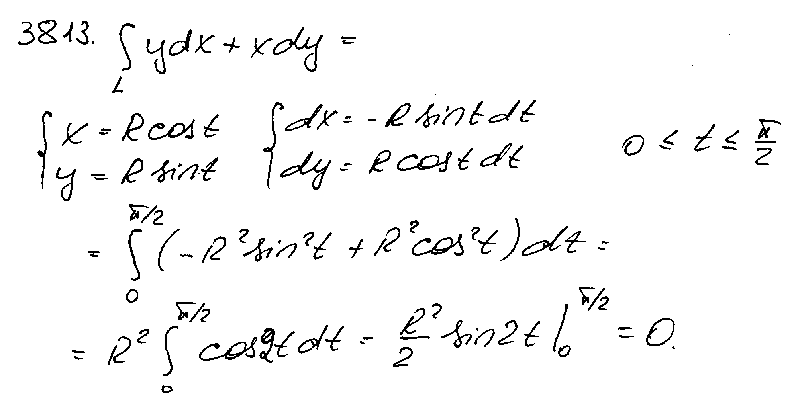 3813. ∫_L ydx + xdy =
{ x = R cost { dx = -R sint dt 0 ≤ t ≤ π/2
{ y = R sint { dy = R cost dt
= ∫_0^{π/2} (-R² sin²t + R² cos²t) dt =
= R² ∫_0^{π/2} cos2t dt = R²/2 sin2t |_0^{π/2} = 0.